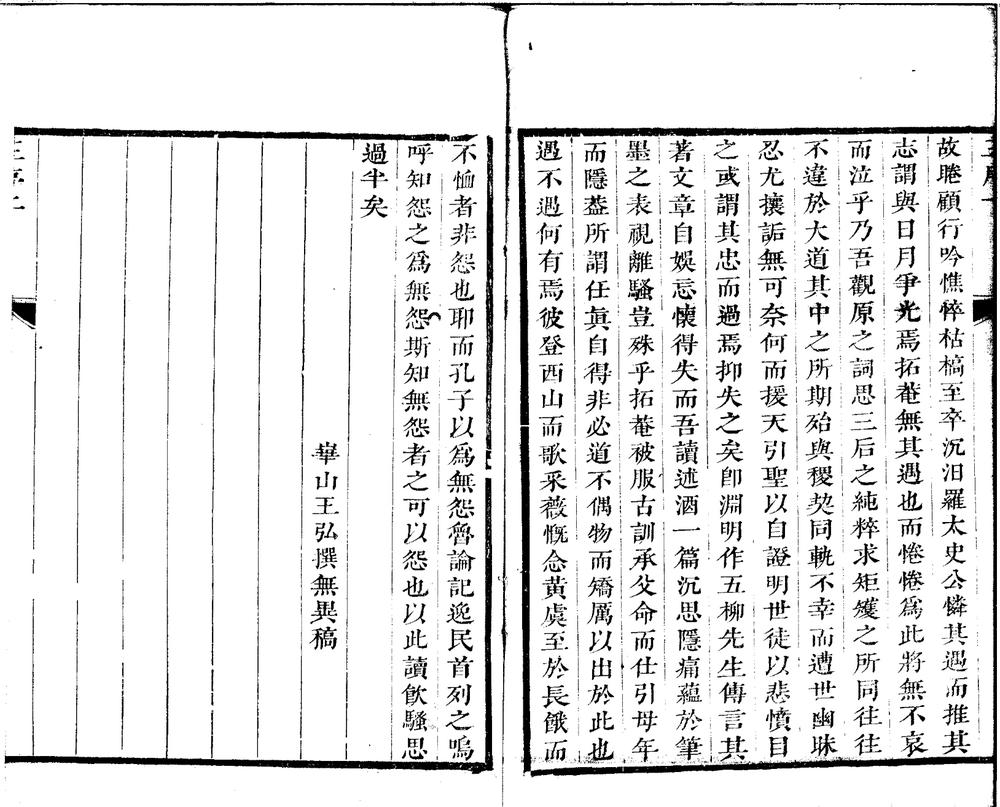 故睠顧行吟憔悴枯槁至卒沉汨羅太史公憐其遇而推其
志謂與日月爭光焉拓菴無其遇也而惓惓爲此將無不哀
而泣乎乃吾觀原之詞思三后之純粹求矩矱之所同往往
不違於大道其中之所期殆與稷契同軌不幸而遭世幽昧
忍尤攘詬無可奈何而援天引聖以自證明世徒以悲憤目
之或謂其忠而過焉抑失之矣卽淵明作五柳先生傳言其
著文章自娛忘懷得失而吾讀述酒一篇沉思隱痛蘊於筆
墨之表視離騷豈殊乎拓菴被服古訓承父命而仕引母年
而隱葢所謂任眞自得非必道不偶物而矯厲以出於此也
遇不遇何有焉彼登西山而歌采薇慨念黃虞至於長餓而
不恤者非怨也耶而孔子以爲無怨魯論記逸民首列之嗚
呼知怨之爲無怨斯知無怨者之可以怨也以此讀飮騷思
過半矣
華山王弘撰無異稿